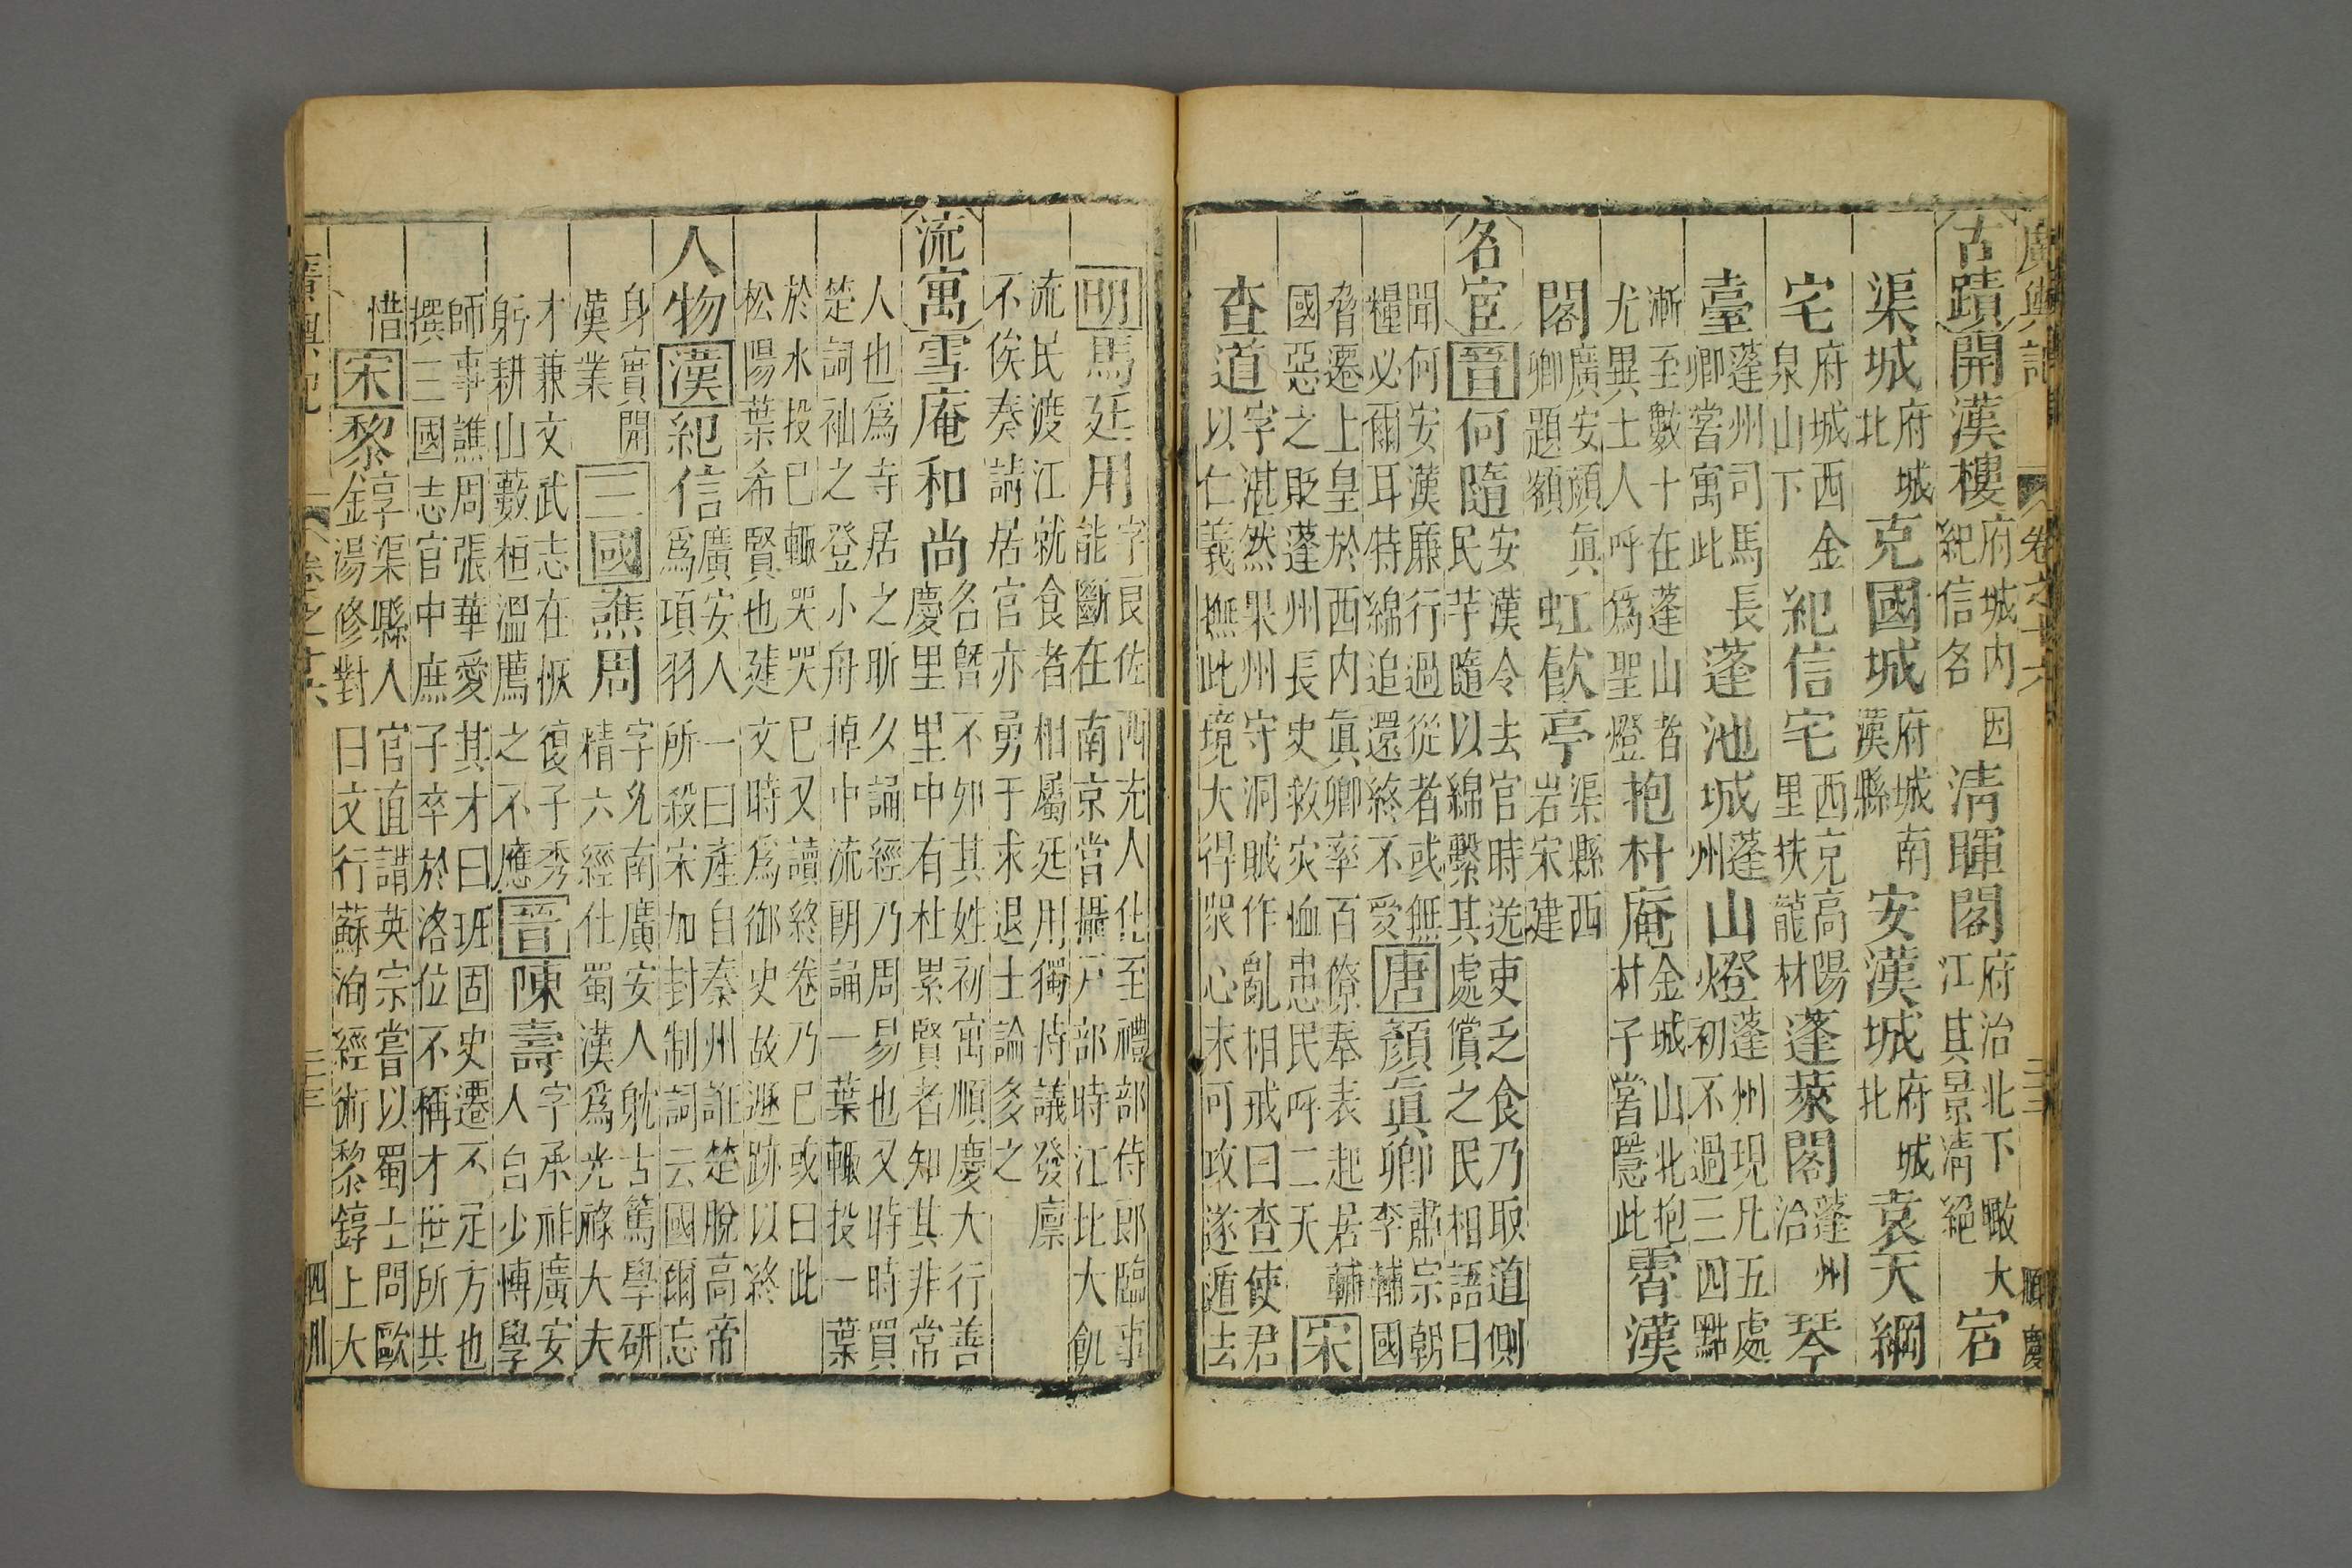 廣輿記 卷之十六 三三 順慶
古蹟開漢樓府城内因紀信名清暉閣府治北下瞰大江其景清絕宕
渠城府城北充國城府城南漢縣安漢城府城北袁天綱
宅府城西金泉山下紀信宅西充高陽里扶龍村蓬萊閣蓬州治琴
臺蓬州司馬長卿嘗寓此蓬池城蓬州山燈蓬州現凡五處初不過三四點
漸至數十在蓬山者尤異土人呼爲聖燈抱朴庵金城山北抱村子嘗隱此霄漢
閣廣安顔眞卿題額虹飲亭渠縣西岩宋建
名宦晉何隨安漢令去官時送吏乏食乃取道側民芋隨以綿繫其處償之民相語曰
聞何安漢廉行過從者或無糧必爾耳特綿追還終不愛唐顏眞卿肅宗朝李輔國
脅遷上皇於西内眞卿率百僚奉表起居輔國惡之貶蓬州長史救灾恤患民呼二天宋
查道字湛然果州守洞賊作亂相戒曰查使君以仁義撫此境大得衆心未可攻遂遁去
明馬廷用字良佐西充人仕至禮部侍郎臨事能斷在南京當攝戸部時江北大飢
流民渡江就食者相屬廷用獨持議發廩不俟奏請居官亦勇于求退士論多之
流寓雪庵和尚名曁不知其姓初寓順慶大行善慶里里中有杜累賢者知其非常
人也爲寺居之昕久誦經乃周易也又時時買楚詞袖之登小舟掉中流朗誦一葉輙投一葉
於水投已輙哭哭已又讀終卷乃已或曰此松陽葉希賢也建文時爲御史故遯跡以終
人物漢紀信廣安人一曰產自秦州誑楚脫高帝爲項羽所殺宋加封制詞云國爾忘
身實開漢業三國譙周字允南廣安人躭古篤學研精六經仕蜀漢爲光祿大夫
才兼文武志在恢復子秀躬耕山藪桓溫薦之不應晉陳壽字承祚廣安人自少博學
師事譙周張華愛其才曰班固史遷不足方也撰三國志官中庶子卒於洛位不稱才世所共
惜宋黎錞渠縣人官直講英宗嘗以蜀士問歐陽修對曰文行蘇洵經術黎錞上大
廣輿記 卷之十六 三三 四川